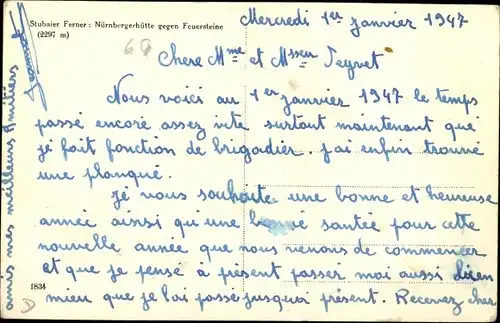 Stubaier Ferner: Nürnbergerhütte gegen Feuersteine
(2297 m)
Mercredi 1er janvier 1947
Chere Mme et Msseur Teyvet
Nous voici au 1er janvier 1947 le temps
passé encore assez vite surtout maintenant que
je fait fonction de brigadier. j'ai enfin trouvé
une planque.
Je vous souhaite une bonne et heureuse
année ainsi qu'une bonne santée pour cette
nouvelle année que nous venons de commencer
et que je pensé à présent passer moi aussi bien
mieu que je l'ai passé jusquoi présent. Recevez cher
amis mes meilleurs amitiers
1834